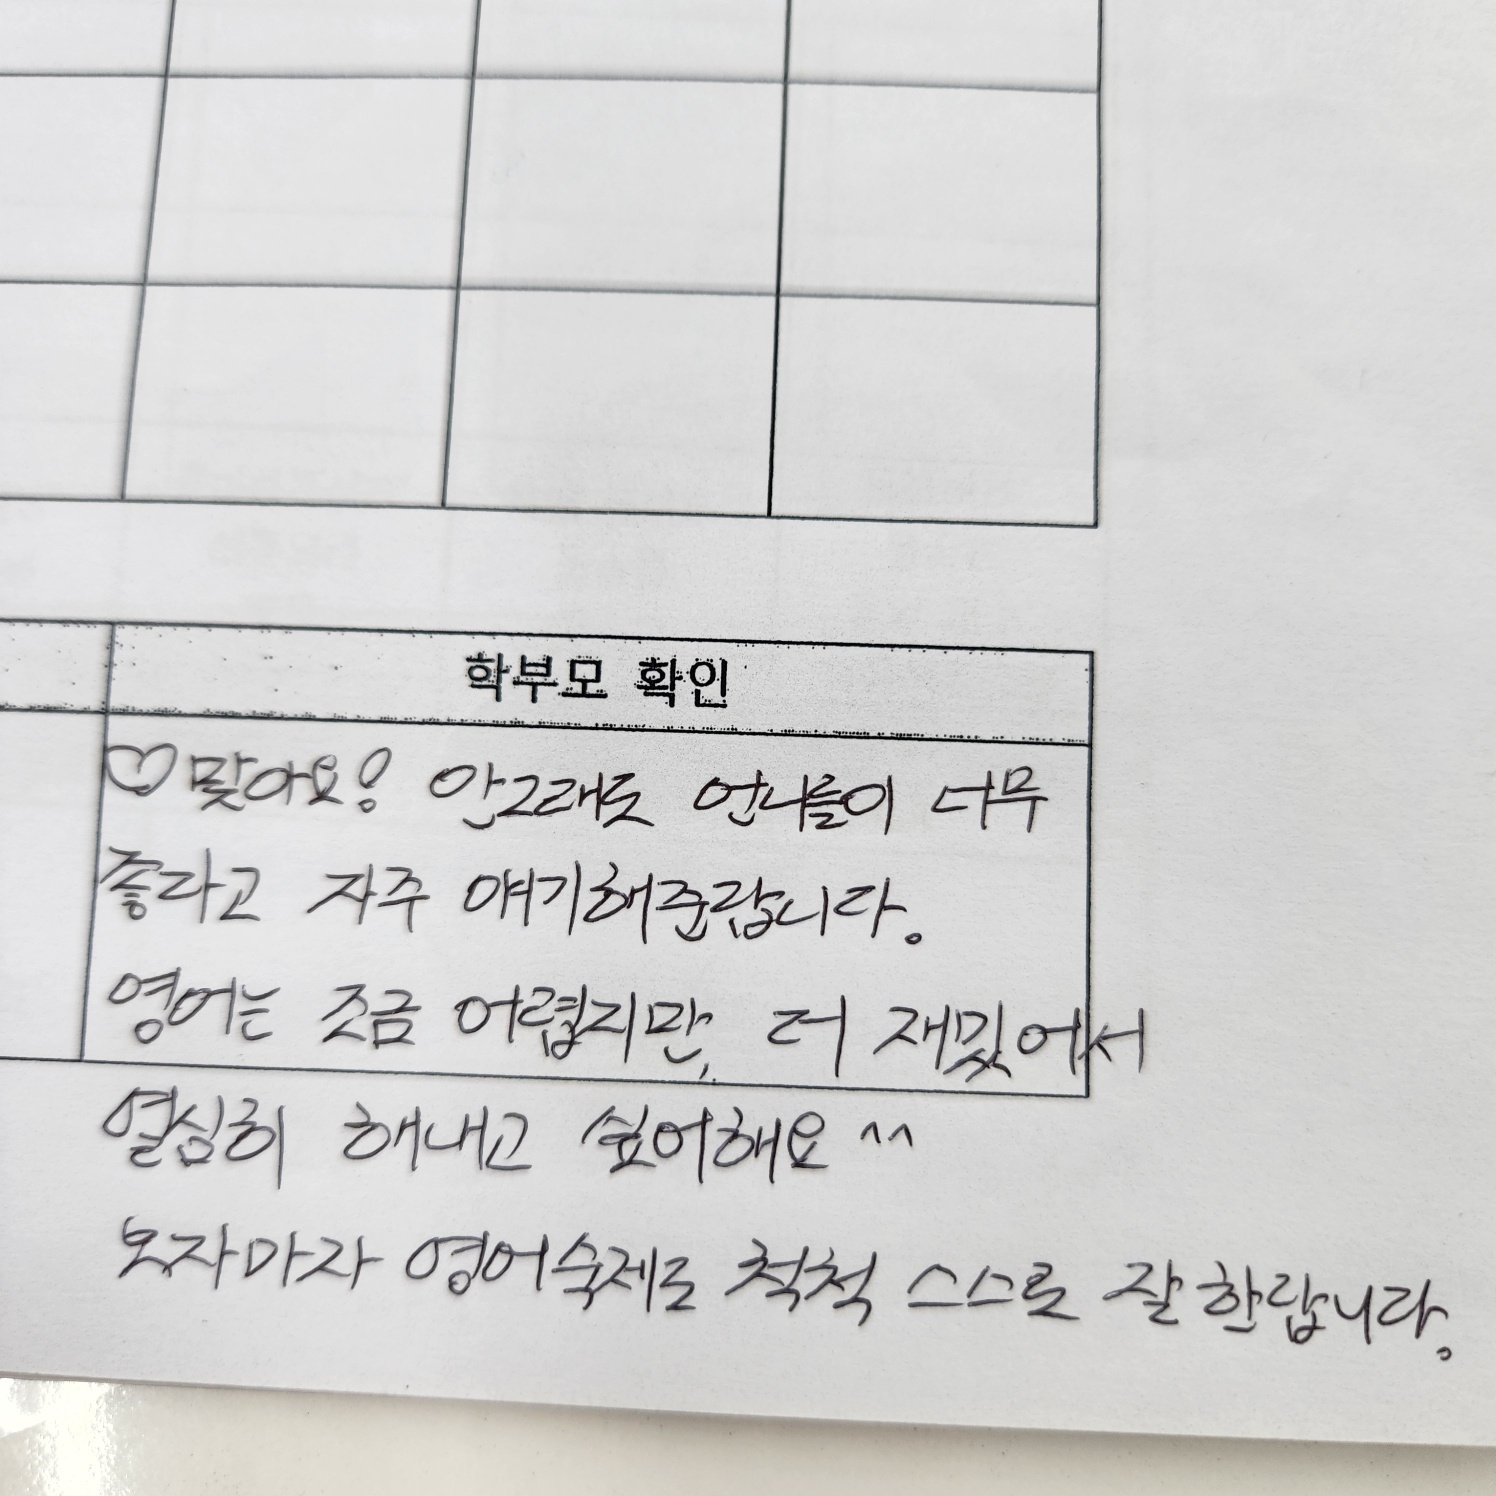 학부모 확인
♡맞아요! 안그래도 언니들이 너무
좋다고 자주 얘기해준답니다.
영어는 조금 어렵지만, 더 재밌어서
열심히 해내고 싶어해요 ^^
오자마자 영어숙제도 척척 스스로 잘한답니다.